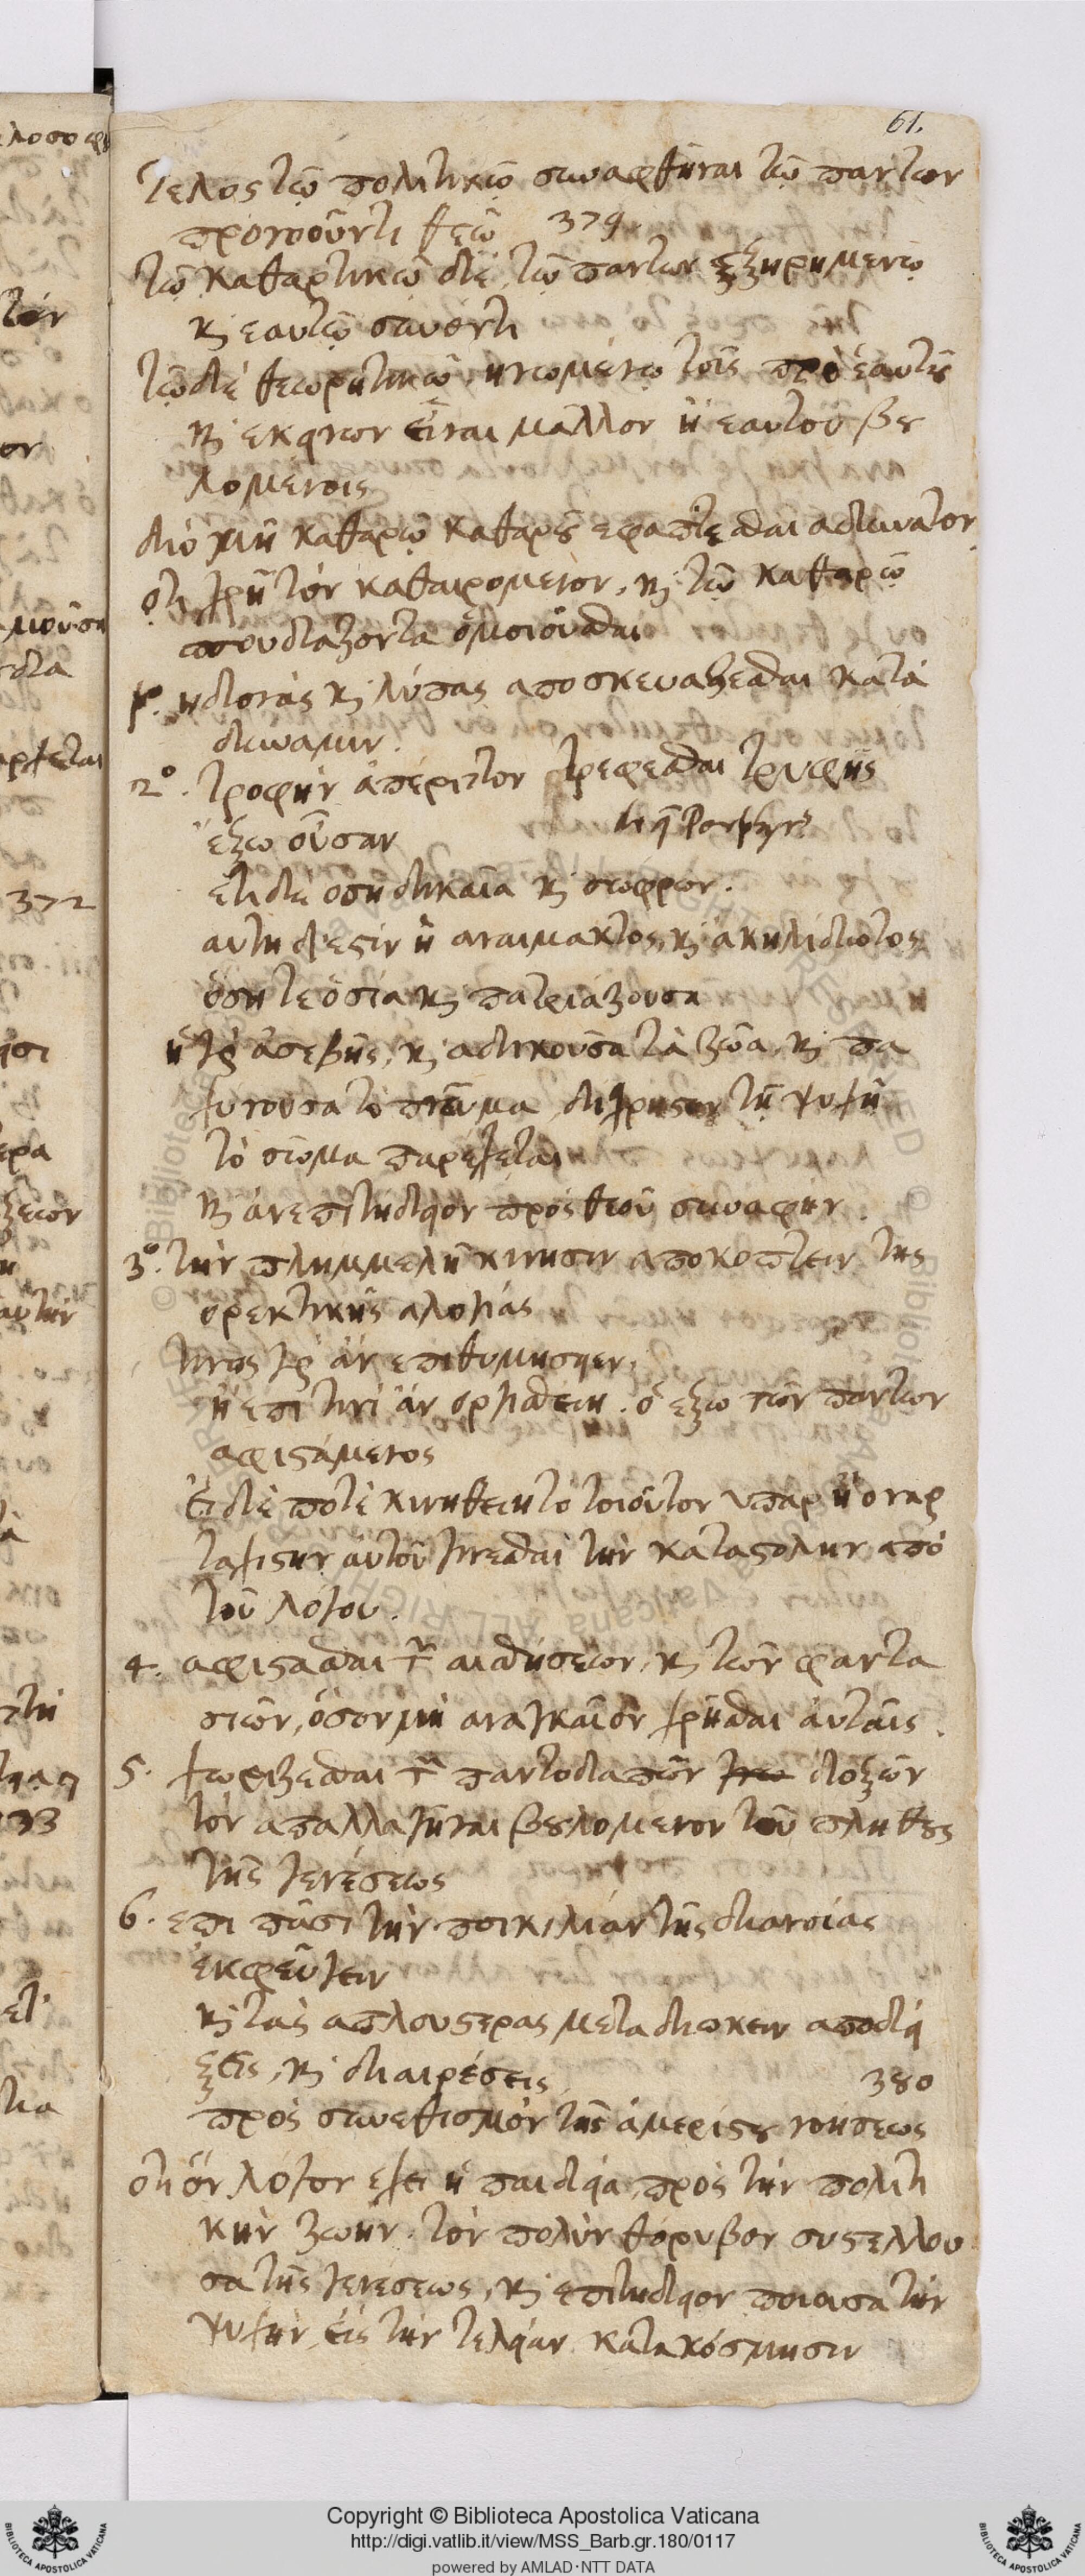 61.
τελος τῷ πολιτικῷ συναφθῆναι τῷ παντων
προνοοῦντι θεῷ 379.
τῷ καθαρτικῷ δὲ, τῷ παντων ἐξῃρημενῳ
κ̀ εαυτῷ συνόντι
τῷ δὲ θεωρητικῷ, ἡνωμένῳ τοῖς πρὸ ἑαυτῆς
κ̀ εκεινων εἶναι μαλλον ἢ εαυτοῦ βȣ
λομένοις
διό μὴ καθαρῷ καθαρȣ͂ εφαπτεσθαι αδυνατον
ὅτι χρὴ τόν καθαιρομενον, κ̀ τῷ καθαρῷ
σπουδαζοντα ὁμοιοῦσθαι
1º. ηδονὰς κ̀ λύπας αποσκευαζεσθαι κατὰ
δυναμιν.
2º. τροφὴν ἀπέριττον τρεφεσθαι τρυφῆς
ἔξω οὖσαν Porphyrˢ
ετι δὲ οση δικαία κ̀ σώφρων.
αυτη δ' εστὶν ἡ αναιμακτος, κ̀ ἀκηλιδωτος
ὅση τε ὁσία κ̀ πατριάζουσα
ἡ γὰρ ἀσεβὴς, κ̀ αδικοῦσα τὰ ζῶα, κ̀ πα
χυνουσα τὸ πνεῦμα, δυσχρηστον τῇ ψυχῇ
τὸ σῶμα παρεχεται
κ̀ ἀνεπιτηδειον πρὸς θεοῦ συναφήν.
3º. τὴν πλημμελῆ κινησιν αποκοπτειν της
ορεκτικῆς αλογίας
τινος γὰρ ἀν επιθυμησειεν,
ἢ επὶ τινὶ ἀν οργισθειη. ὁ ἔξω των παντων
αφιστάμενος
Ἐι δὲ ποτὲ κινηθειη το τοιοῦτον υπαρ ἢ οναρ
ταχιστην αὐτοῦ γινεσθαι τὴν καταστολην απὸ
τοῦ λόγου.
4. αφιστασθαι τ͂ αισθήσεων, κ̀ τῶν φαντα
σιῶν, ὅσον μὴ αναγκαῖον χρῆσθαι ἀυταῖς.
5. χωριζεσθαι τ͂ παντοδαπῶν δοξῶν
τὸν απαλλαγῆναι βȣλομενον τοῦ πληθȣς
τῆς γενέσεως
6. επι πᾶσι τὴν ποικιλίαν τῆς διανοίας
ἐκφεύγειν
κ̀ τὰς απλουστερας μεταδιωκειν αποδεί
ξεις, κ̀ διαιρέσεις 380
πρὸς συνεθισμὸν τῆς ἀμερίστȣ νοησεως
οτι ὃν λόγον εχει ἡ παιδεία πρὸς τὴν πολιτι
κὴν ζωὴν. τὸν πολὺν θόρυβον συστελλου
σα τῆς γενεσεως, κ̀ επιτηδειον ποιουσα τὴν
ψυχὴν, εἰς τὴν τελείαν κατακόσμησιν
Copyright © Biblioteca Apostolica Vaticana
http://digi.vatlib.it/view/MSS_Barb.gr.180/0117
powered by AMLAD·NTT DATA